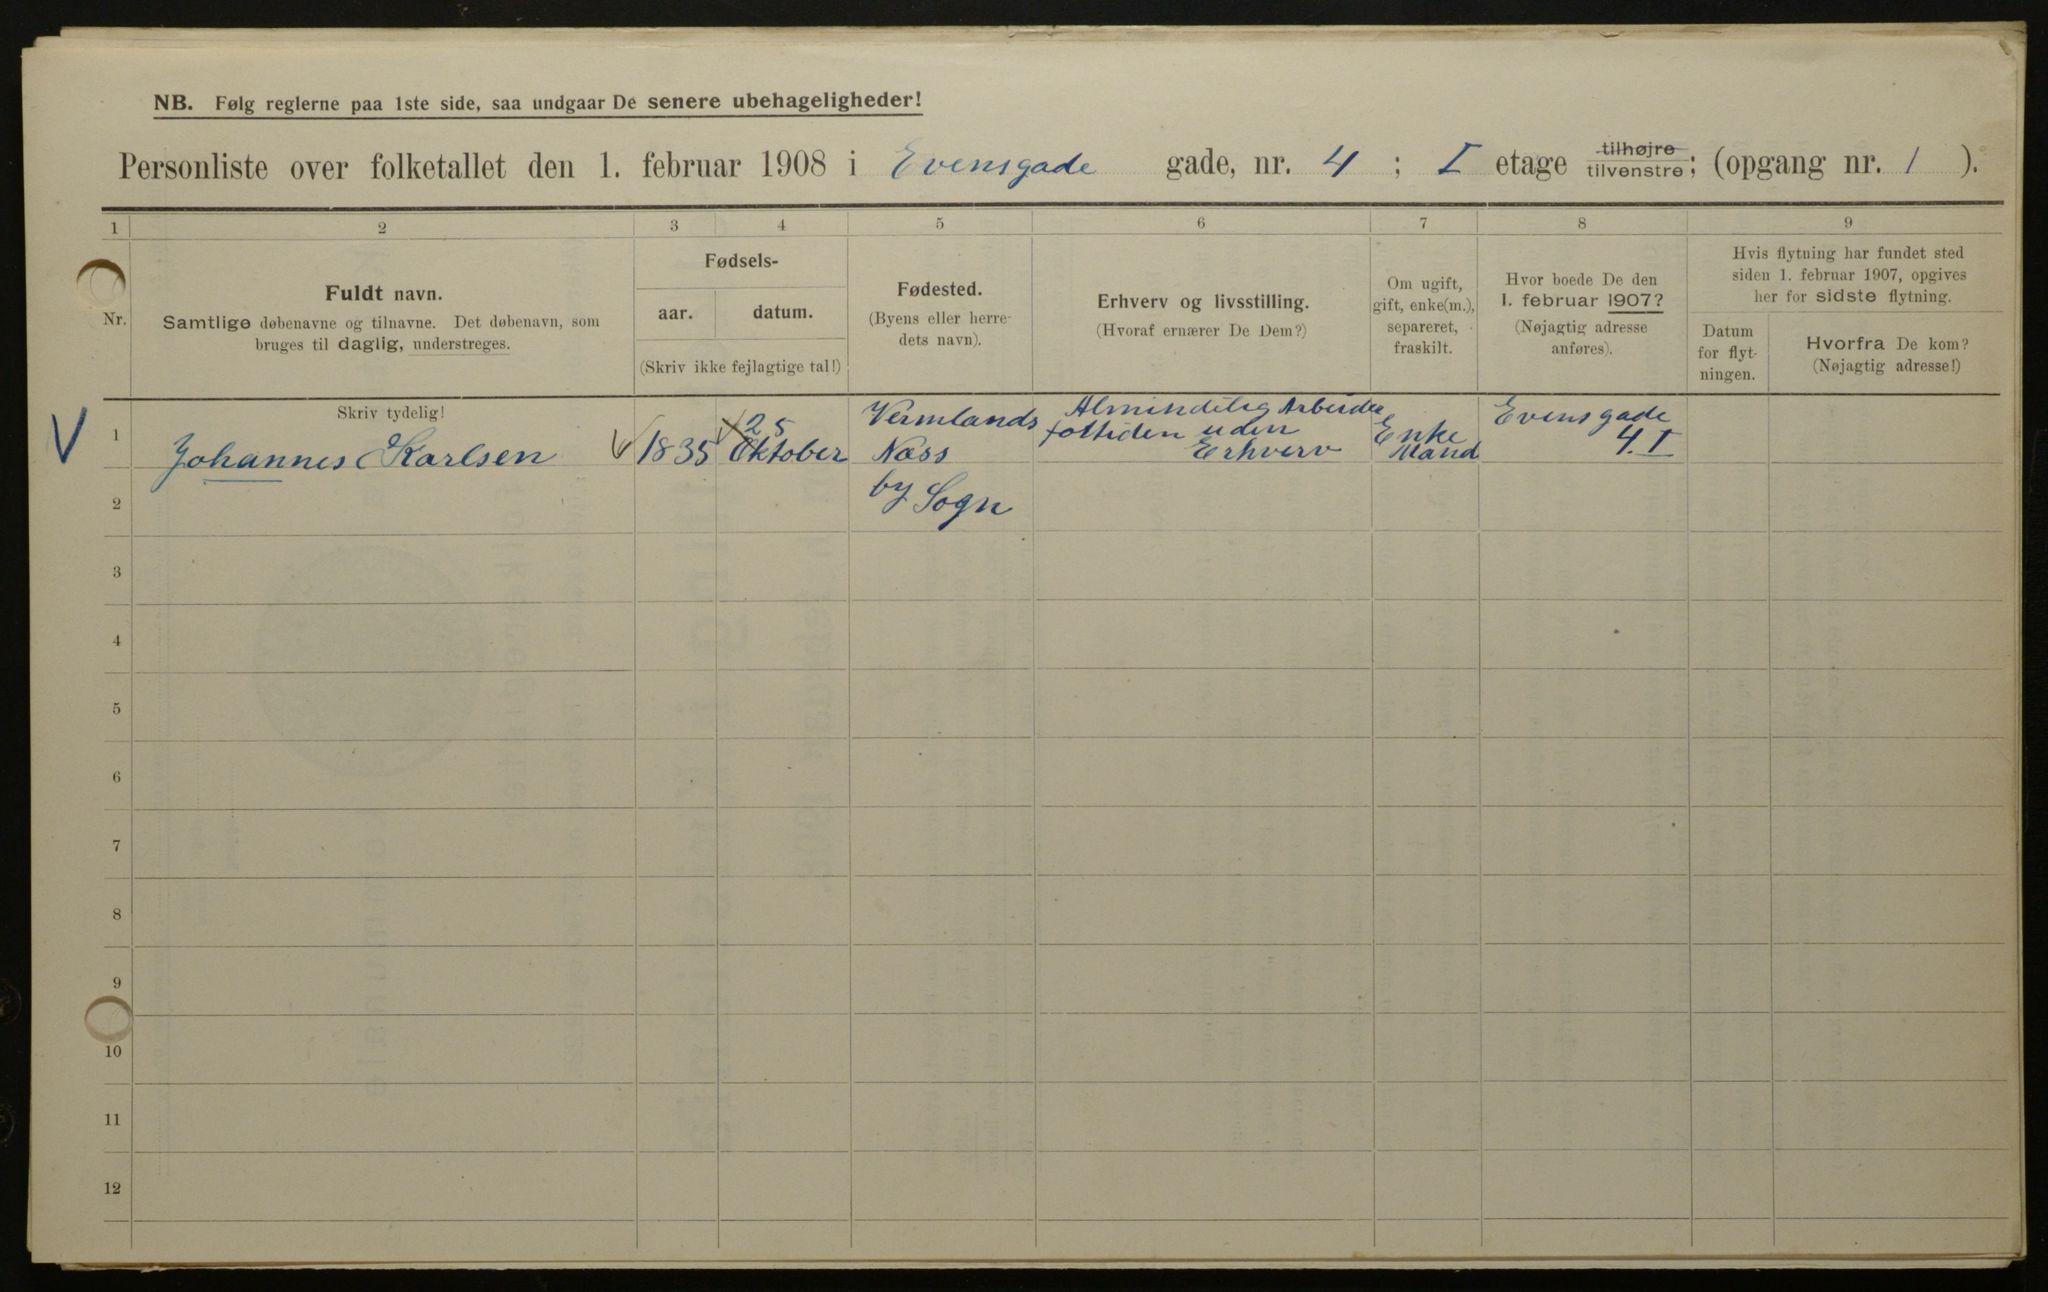 NB. Følg reglerne paa 1ste side, saa undgaar De senere ubehageligheder!
Personliste over folketallet den 1. februar 1908 i Evensgade gade, nr. 4 ; I etage tilhøjre / tilvenstre ; (opgang nr. 1 ).
1 2 3 4 5 6 7 8 9
Nr.
Fuldt navn.
Samtlige døbenavne og tilnavne. Det døbenavn, som
bruges til daglig, understreges.
Fødsels-
aar. datum.
(Skriv ikke fejlagtige tal!)
Fødested.
(Byens eller herre-
dets navn).
Erhverv og livsstilling.
(Hvoraf ernærer De Dem?)
Om ugift,
gift, enke(m.),
separeret,
fraskilt.
Hvor boede De den
1. februar 1907?
(Nøjagtig adresse
anføres).
Hvis flytning har fundet sted
siden 1. februar 1907, opgives
her for sidste flytning.
Datum
for flyt-
ningen.
Hvorfra De kom?
(Nøjagtig adresse!)
Skriv tydelig!
V
1
Johannes Karlsen
1835
25
Oktober
Vermlands
Næss
by Sogn
Almindelig Arbeider
uden
Erhverv
Enke
Mand
Evensgade
4. I
2
3
4
5
6
7
8
9
10
11
12